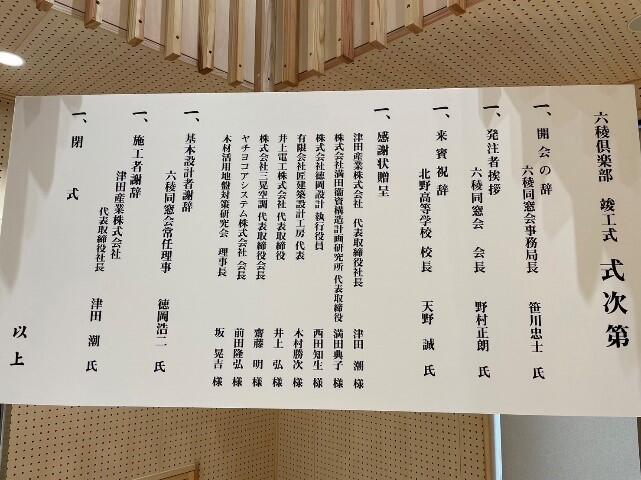 六稜倶楽部 竣工式 式次第
一、開会の辞
六稜同窓会事務局長 笹川忠士 氏
一、発注者挨拶
六稜同窓会 会長 野村正朗 氏
一、来賓祝辞
北野高等学校 校長 天野 誠 氏
一、感謝状贈呈
津田産業株式会社 代表取締役社長 津田 潮 様
株式会社満田衛資構造計画研究所 代表取締役 満田典子 様
株式会社徳岡設計 執行役員 西田知生 様
有限会社匠建築設計工房 代表 木村勝次 様
井上電工株式会社 代表取締役 井上 弘 様
株式会社三晃空調 代表取締役会長 齋藤 明 様
ヤチヨコアシステム株式会社 会長 前田隆弘 様
木材活用地盤対策研究会 理事長 坂 晃吉 様
一、基本設計者謝辞
六稜同窓会常任理事 徳岡浩二 氏
一、施工者謝辞
津田産業株式会社
代表取締役社長 津田 潮 氏
一、閉 式
以上